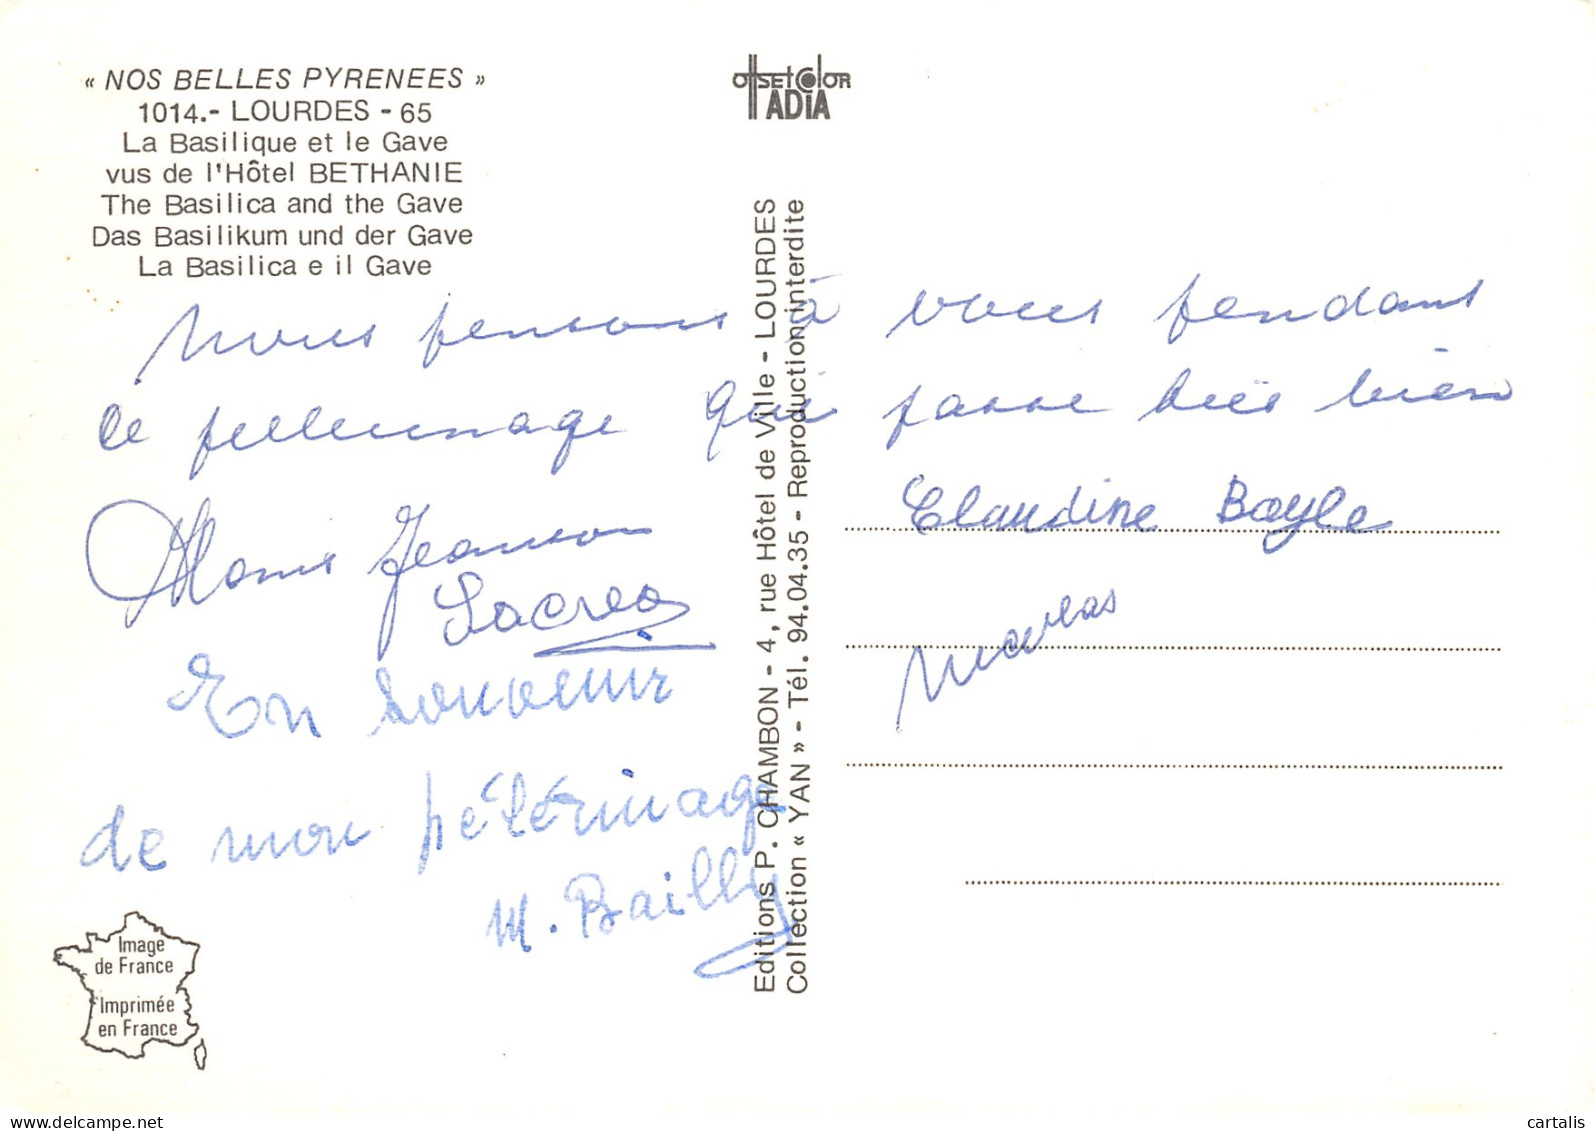 « NOS BELLES PYRENEES »
1014.- LOURDES - 65
La Basilique et le Gave
vus de l'Hôtel BETHANIE
The Basilica and the Gave
Das Basilikum und der Gave
La Basilica e il Gave
offset color
ADIA
Nous pensons à vous pendant
ce pellerinage qui passe très bien
Jeanson
En souvenir
de mon pélérinage
M. Bailly
Claudine Bayle
Editions P. CHAMBON - 4, rue Hôtel de Ville - LOURDES
Collection « YAN » - Tél. 94.04.35 - Reproduction interdite
Image
de France
Imprimée
en France
cartalis